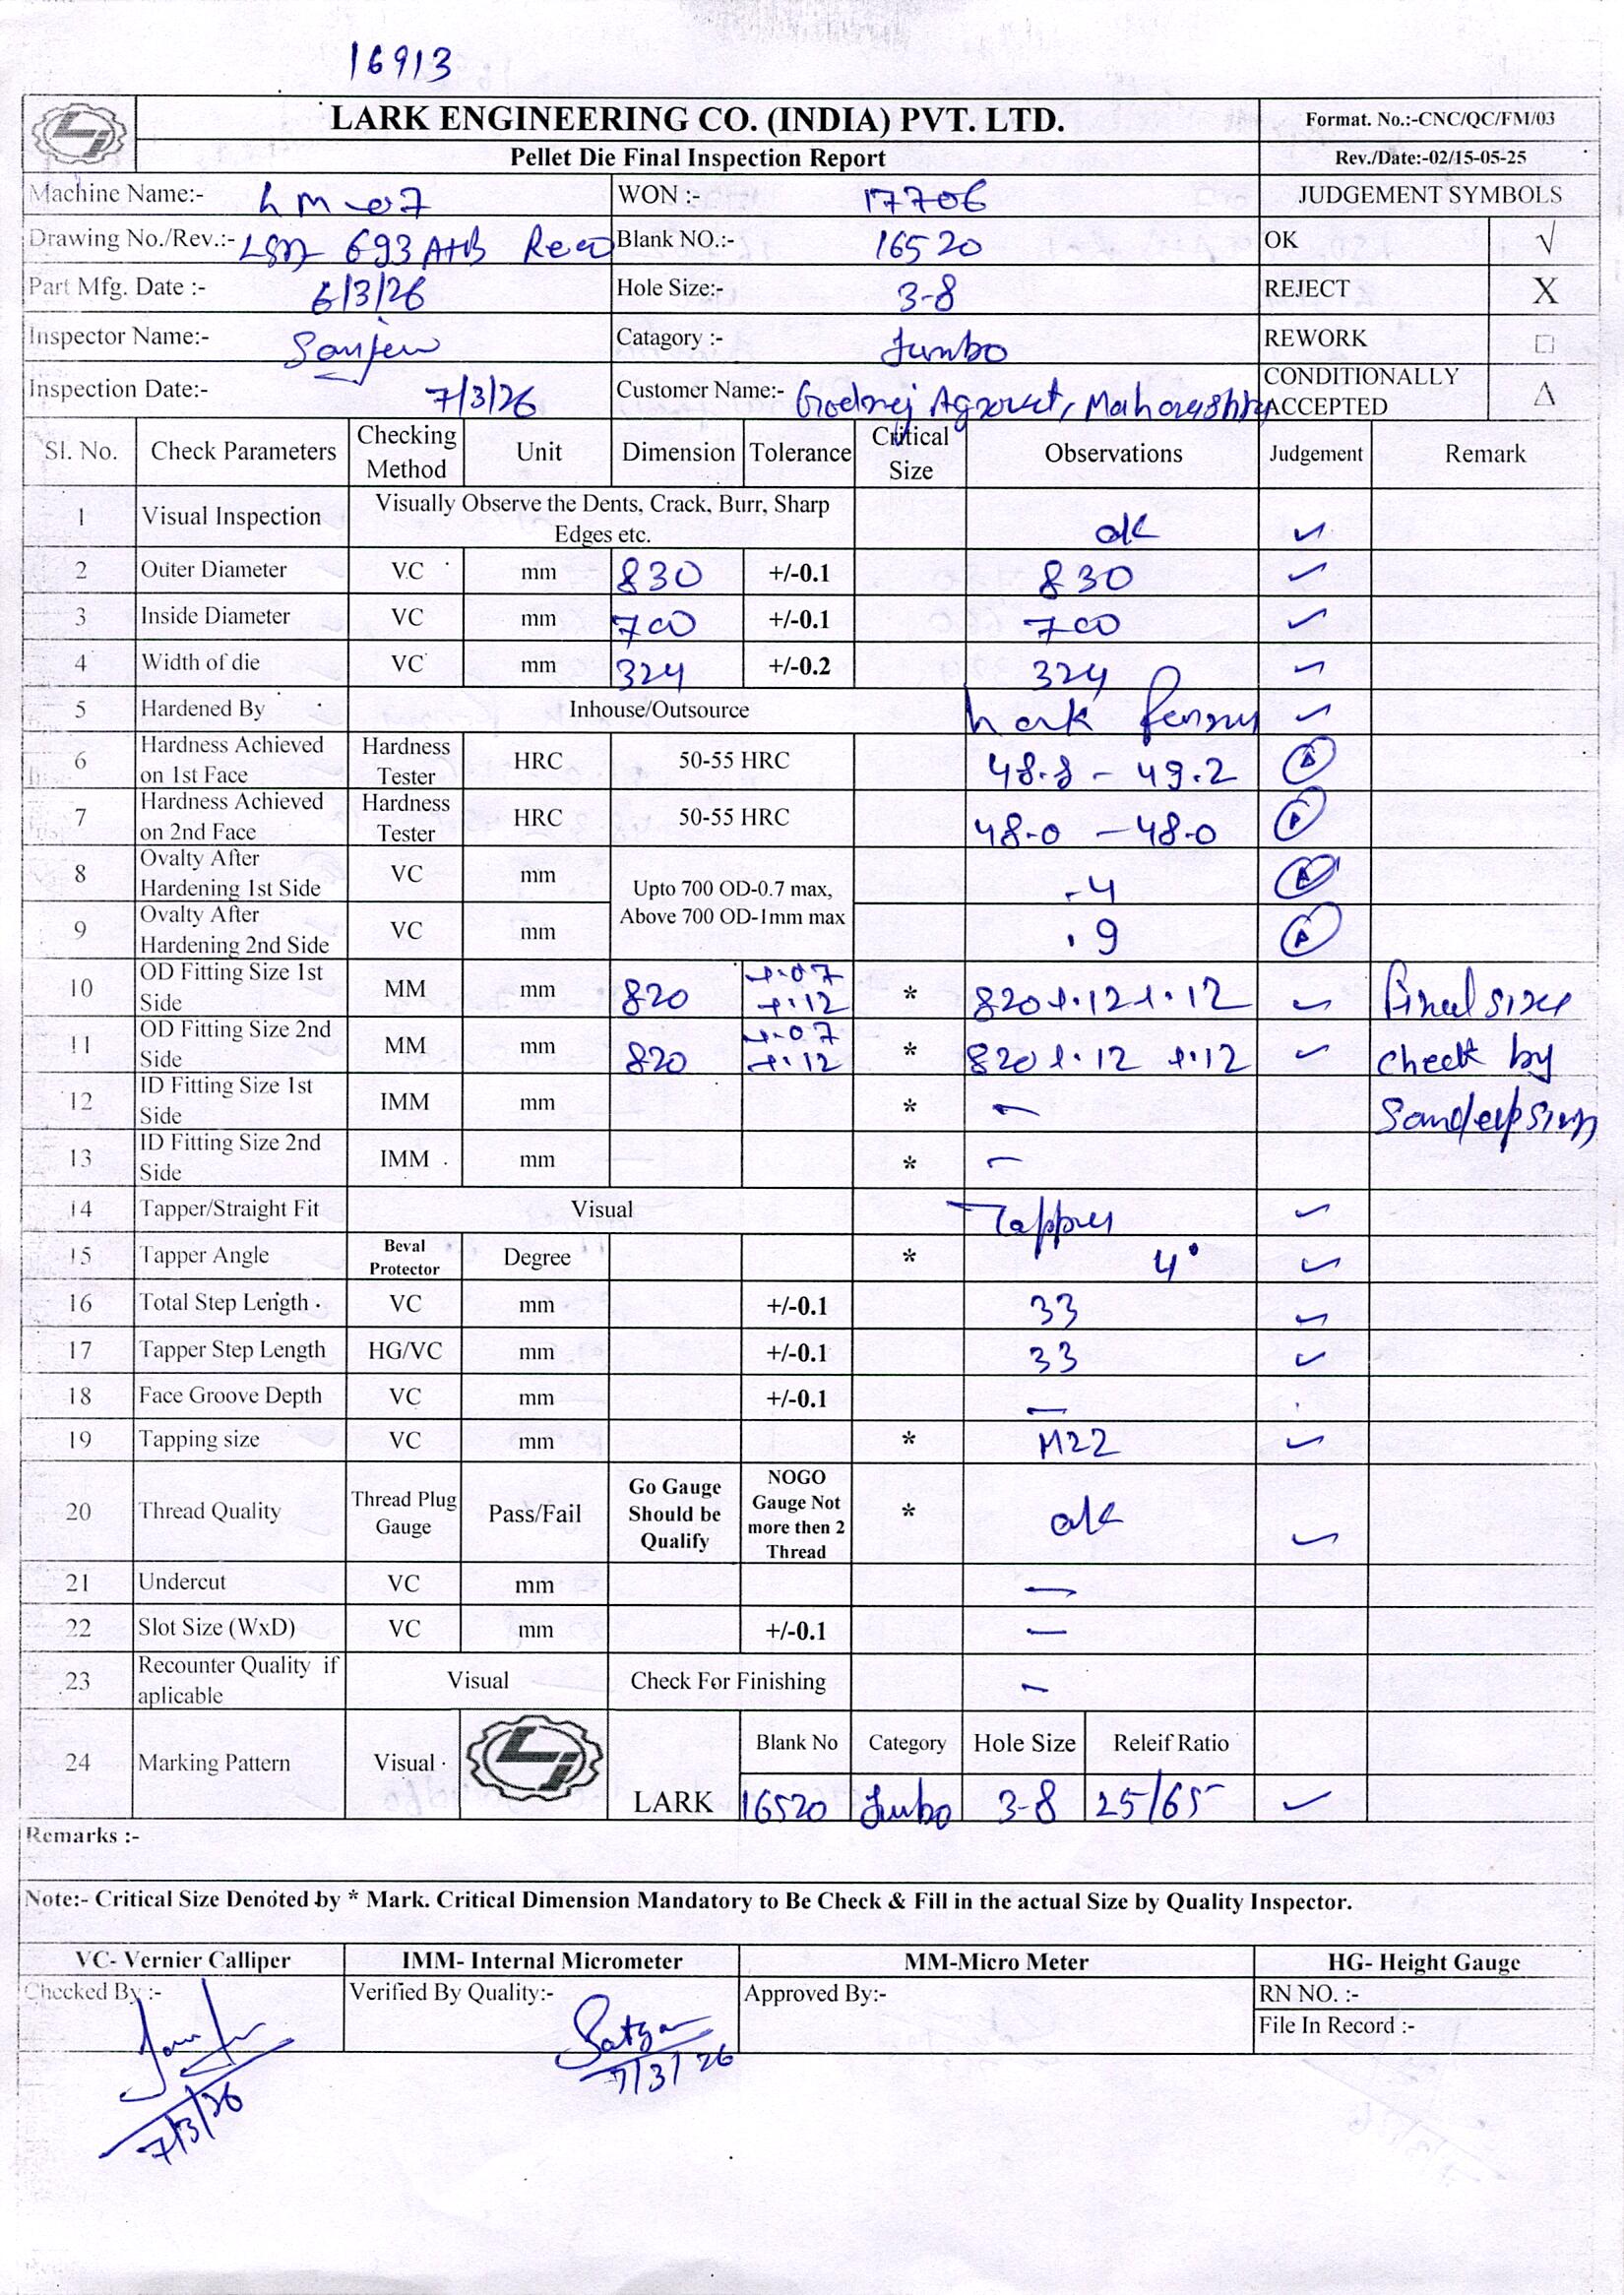 16913
LARK ENGINEERING CO. (INDIA) PVT. LTD. Format. No.:-CNC/QC/FM/03
Pellet Die Final Inspection Report Rev./Date:-02/15-05-25
Machine Name:- LM-07 WON :- 17706 JUDGEMENT SYMBOLS
Drawing No./Rev.:- 693 A+B Blank NO.:- 16520 OK √
Part Mfg. Date :- 6/3/26 Hole Size:- 3-8 REJECT X
Inspector Name:- Sanjeev Catagory :- Jumbo REWORK □
Inspection Date:- 7/3/26 Customer Name:- Godrej Agrovet, Maharashtra CONDITIONALLY ACCEPTED Δ
Sl. No. Check Parameters Checking Method Unit Dimension Tolerance Critical Size Observations Judgement Remark
1 Visual Inspection Visually Observe the Dents, Crack, Burr, Sharp Edges etc. ok ✓
2 Outer Diameter VC mm 830 +/-0.1 830 ✓
3 Inside Diameter VC mm 700 +/-0.1 700 ✓
4 Width of die VC mm 324 +/-0.2 324 ✓
5 Hardened By Inhouse/Outsource Lark ✓
6 Hardness Achieved on 1st Face Hardness Tester HRC 50-55 HRC 48.8 - 49.2
7 Hardness Achieved on 2nd Face Hardness Tester HRC 50-55 HRC 48.0 - 48.0
8 Ovalty After Hardening 1st Side VC mm Upto 700 OD-0.7 max, Above 700 OD-1mm max .4
9 Ovalty After Hardening 2nd Side VC mm .9
10 OD Fitting Size 1st Side MM mm 820 +.07 +.12 * 820 +.12 +.12 ✓ Final size
11 OD Fitting Size 2nd Side MM mm 820 +.07 +.12 * 820 +.12 +.12 ✓ check by
12 ID Fitting Size 1st Side IMM mm * - Sandeep
13 ID Fitting Size 2nd Side IMM mm * -
14 Tapper/Straight Fit Visual Tapper ✓
15 Tapper Angle Beval Protector Degree * 4° ✓
16 Total Step Length VC mm +/-0.1 33 ✓
17 Tapper Step Length HG/VC mm +/-0.1 33 ✓
18 Face Groove Depth VC mm +/-0.1 -
19 Tapping size VC mm * M22 ✓
20 Thread Quality Thread Plug Gauge Pass/Fail Go Gauge Should be Qualify NOGO Gauge Not more then 2 Thread * ok ✓
21 Undercut VC mm -
22 Slot Size (WxD) VC mm +/-0.1 -
23 Recounter Quality if aplicable Visual Check For Finishing -
24 Marking Pattern Visual LARK Blank No Category Hole Size Releif Ratio
16520 Jumbo 3-8 25/65 ✓
Remarks :-
Note:- Critical Size Denoted by * Mark. Critical Dimension Mandatory to Be Check & Fill in the actual Size by Quality Inspector.
VC- Vernier Calliper IMM- Internal Micrometer MM-Micro Meter HG- Height Gauge
Checked By :- Verified By Quality:- Satyam Approved By:- RN NO. :-
File In Record :-
7/3/26 7/3/26